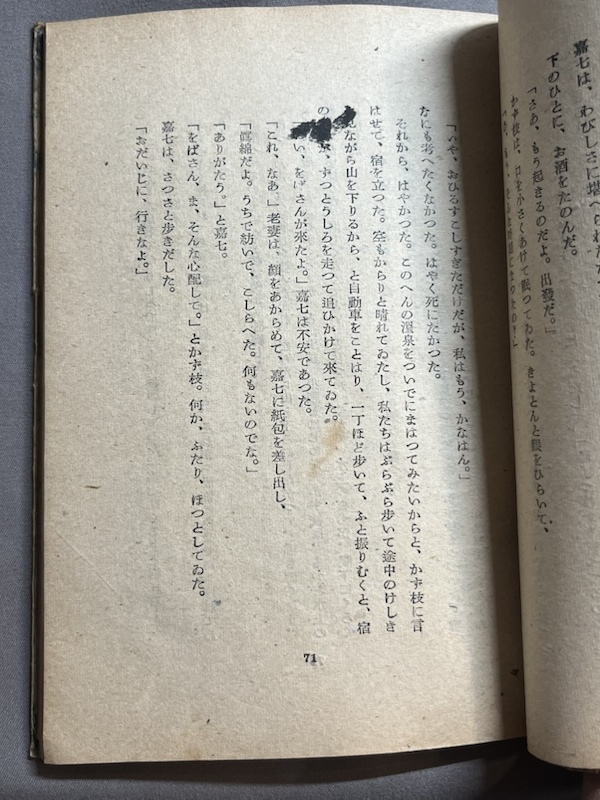 嘉七は、わびしさに堪へられ
下のひとに、お酒をたのんだ。
「さあ、もう起きるのだよ。出發だ。」
かず枝は、口を小さくあけて眠つてゐた。きよとんと眼をひらいて、
や、おひるすこしすぎただけだが、私はもう、かなはん。」
なにも考へたくなかつた。はやく死にたかつた。
それから、はやかつた。このへんの溫泉をついでにまはつてみたいからと、かず枝に言
はせて、宿を立つた。空もからりと晴れてゐたし、私たちはぶらぶら歩いて途中のけしき
ながら山を下りるから、と自動車をことはり、一丁ほど歩いて、ふと振りむくと、宿
の が、ずつとうしろを走つて追ひかけて來てゐた。
い、をばさんが來たよ。」嘉七は不安であつた。
「これ、なあ。」老妻は、顏をあからめて、嘉七に紙包を差し出し、
「眞綿だよ。うちで紡いで、こしらへた。何もないのでな。」
「ありがたう。」と嘉七。
「をばさん、ま、そんな心配して。」とかず枝。何か、ふたり、ほつとしてゐた。
嘉七は、さつさと歩きだした。
「おだいじに、行きなよ。」
71